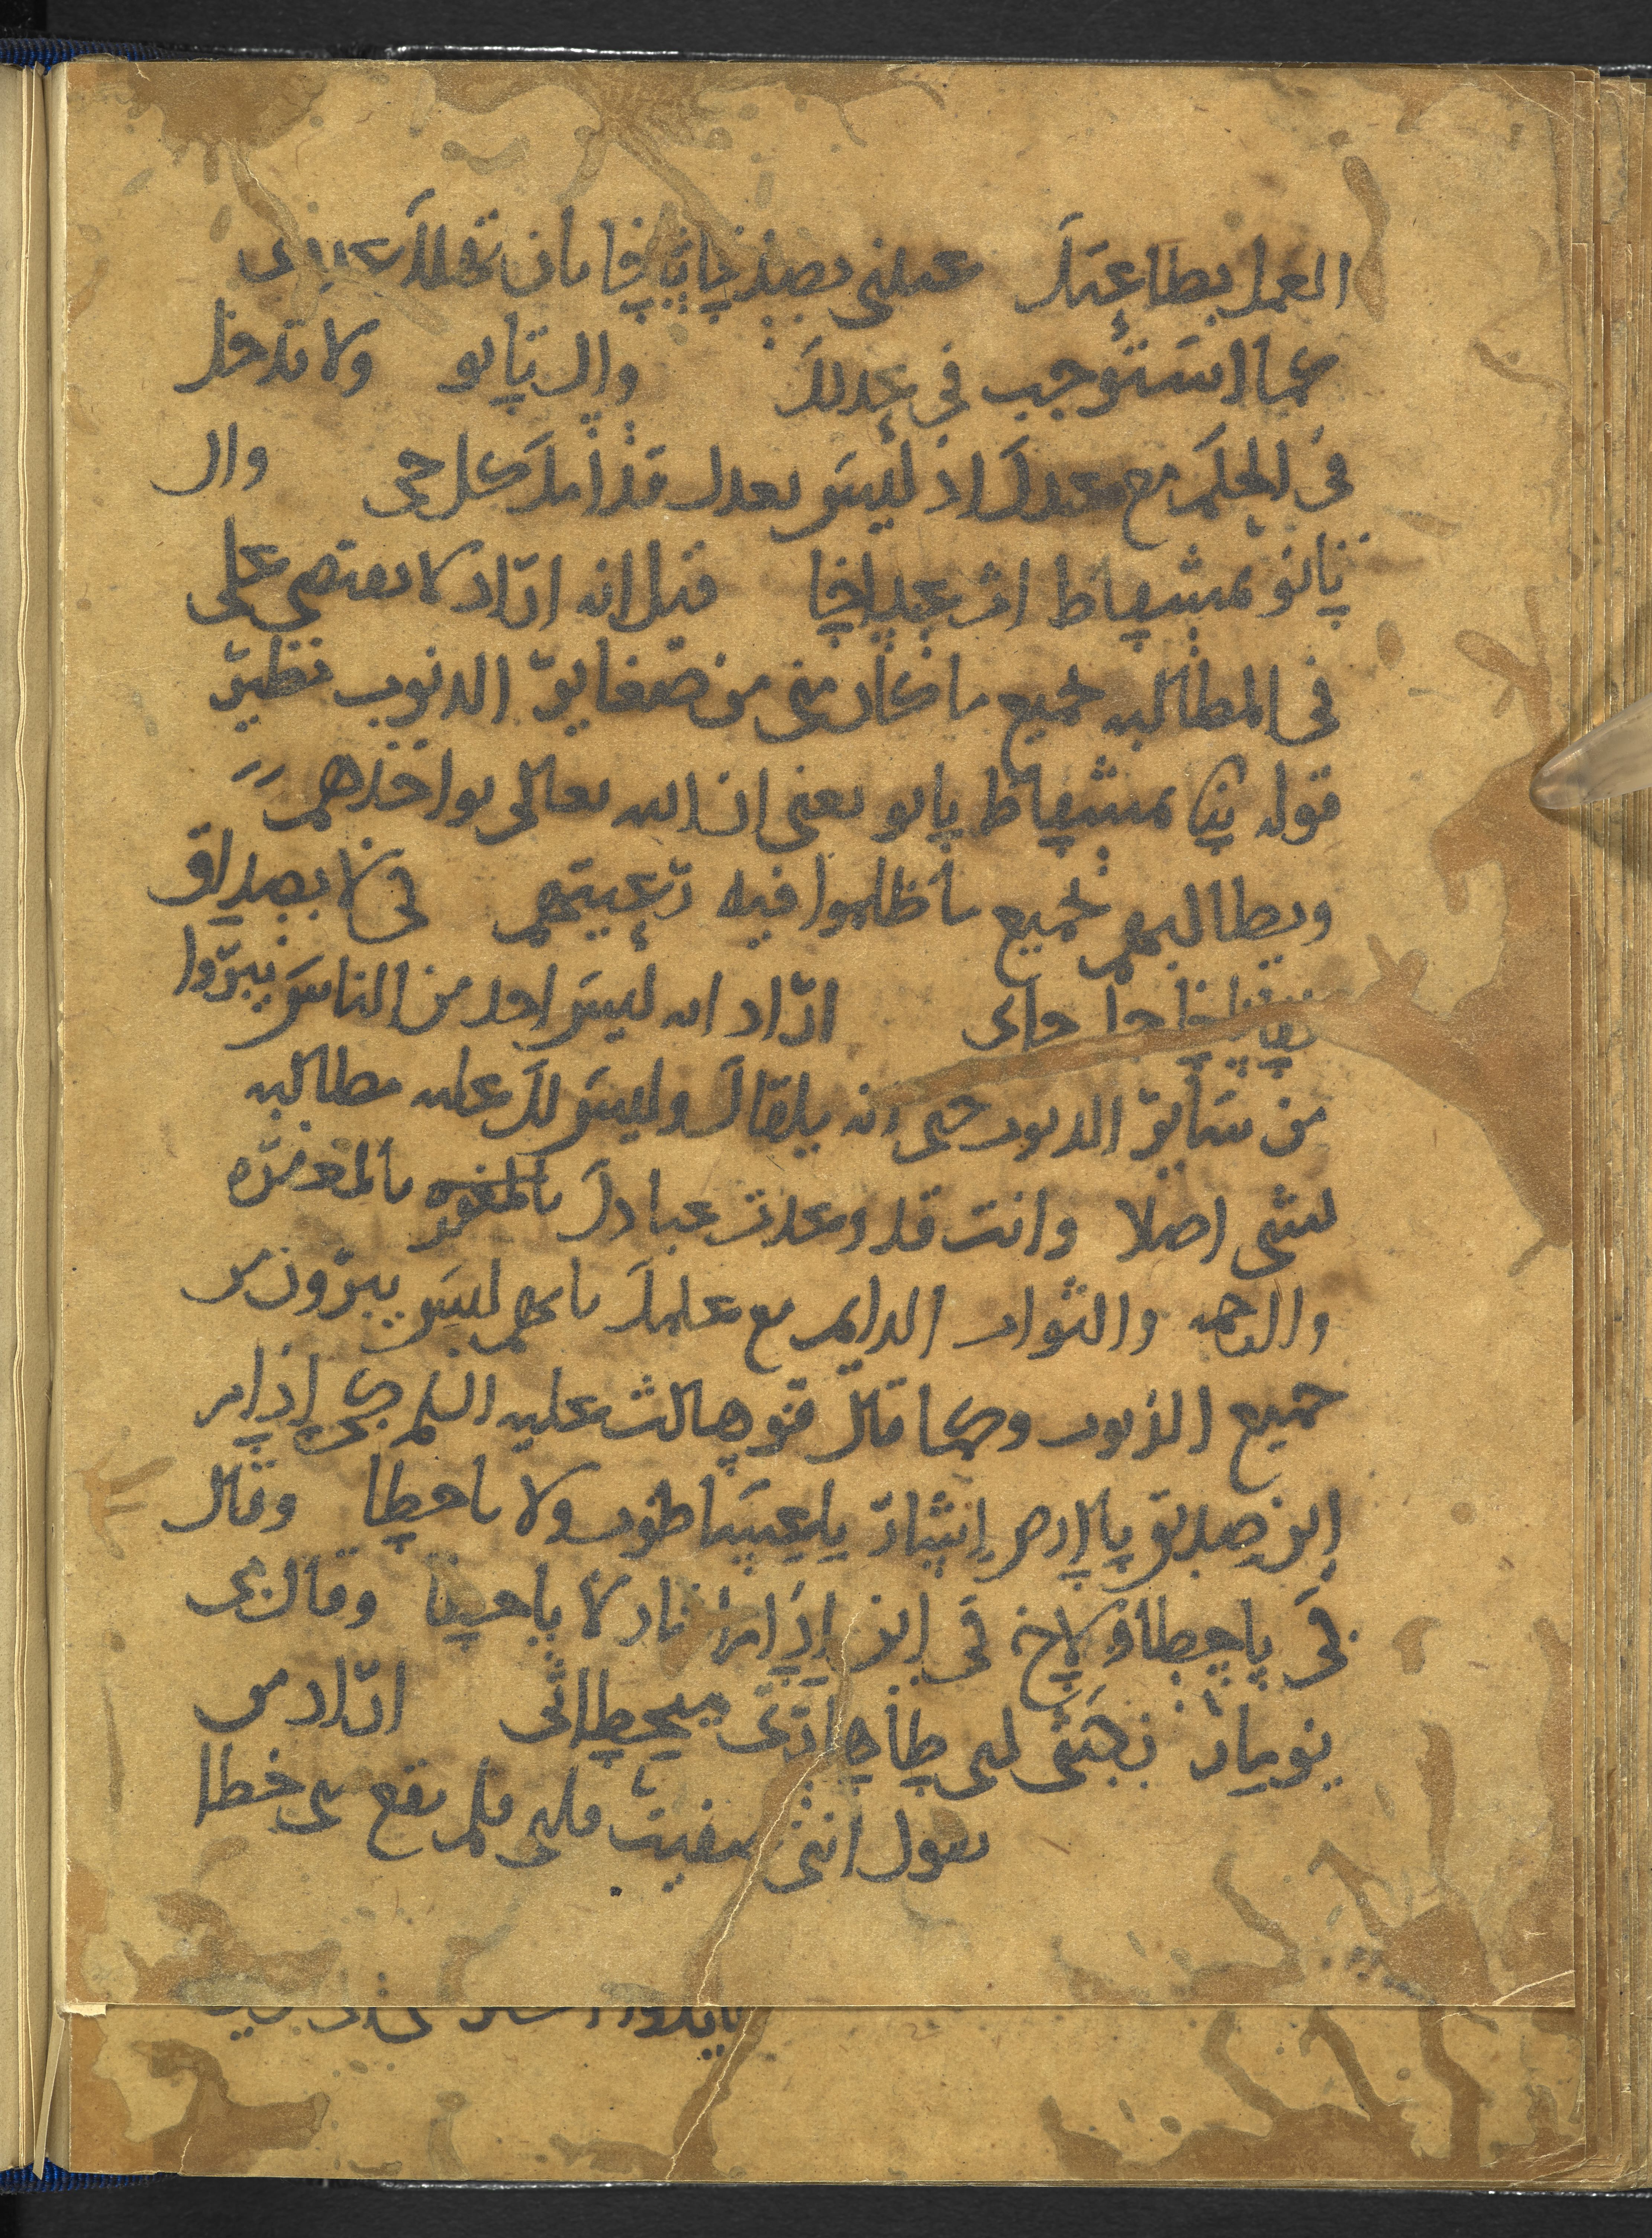 العمل بطاعتك عملنى بصدقاثاخا بان
عما استوجب فى عدلك وال تابو ولا تدخل
فى الحكم مع عبدك اذ ليس بعدل قدامك كل حى وال
تابو بمشفاط اث عبداخا قيل انه اراد لا تعتصى على
فى المطالبه بجميع ما كان منى من صغاير الذنوب نظير
قوله يىا بمشفاط يابو يعنى ان الله تعالى يواخذهم
ويطالبهم بجميع ما ظلموا فيه رعيتهم كى لا يصداق
لفاناخا خل حاى اراد انه ليس احد من الناس يبروا
من ساير الذنوب حتى انه يلقاك وليس لك عليه مطالبه
بشى اصلا وانت قد وعدت عبادك بالمغفره
والرحمه والثواب الدايم مع علمك بانهم ليس يبرون من
جميع الذنوب وكما قال قوهالث عليه السلم كى اذام
اين صديق باارص اشار يعسا طوب ولا ياحطا وقال
كى ياحطاو لاخ كى اين اذام اشار لا ياحطا وقال مى
يومار زكيثى لبى طاهرتى ميحطاثى اراد من
يقول اننى صفيت قلبى فلم يقع لى خطا